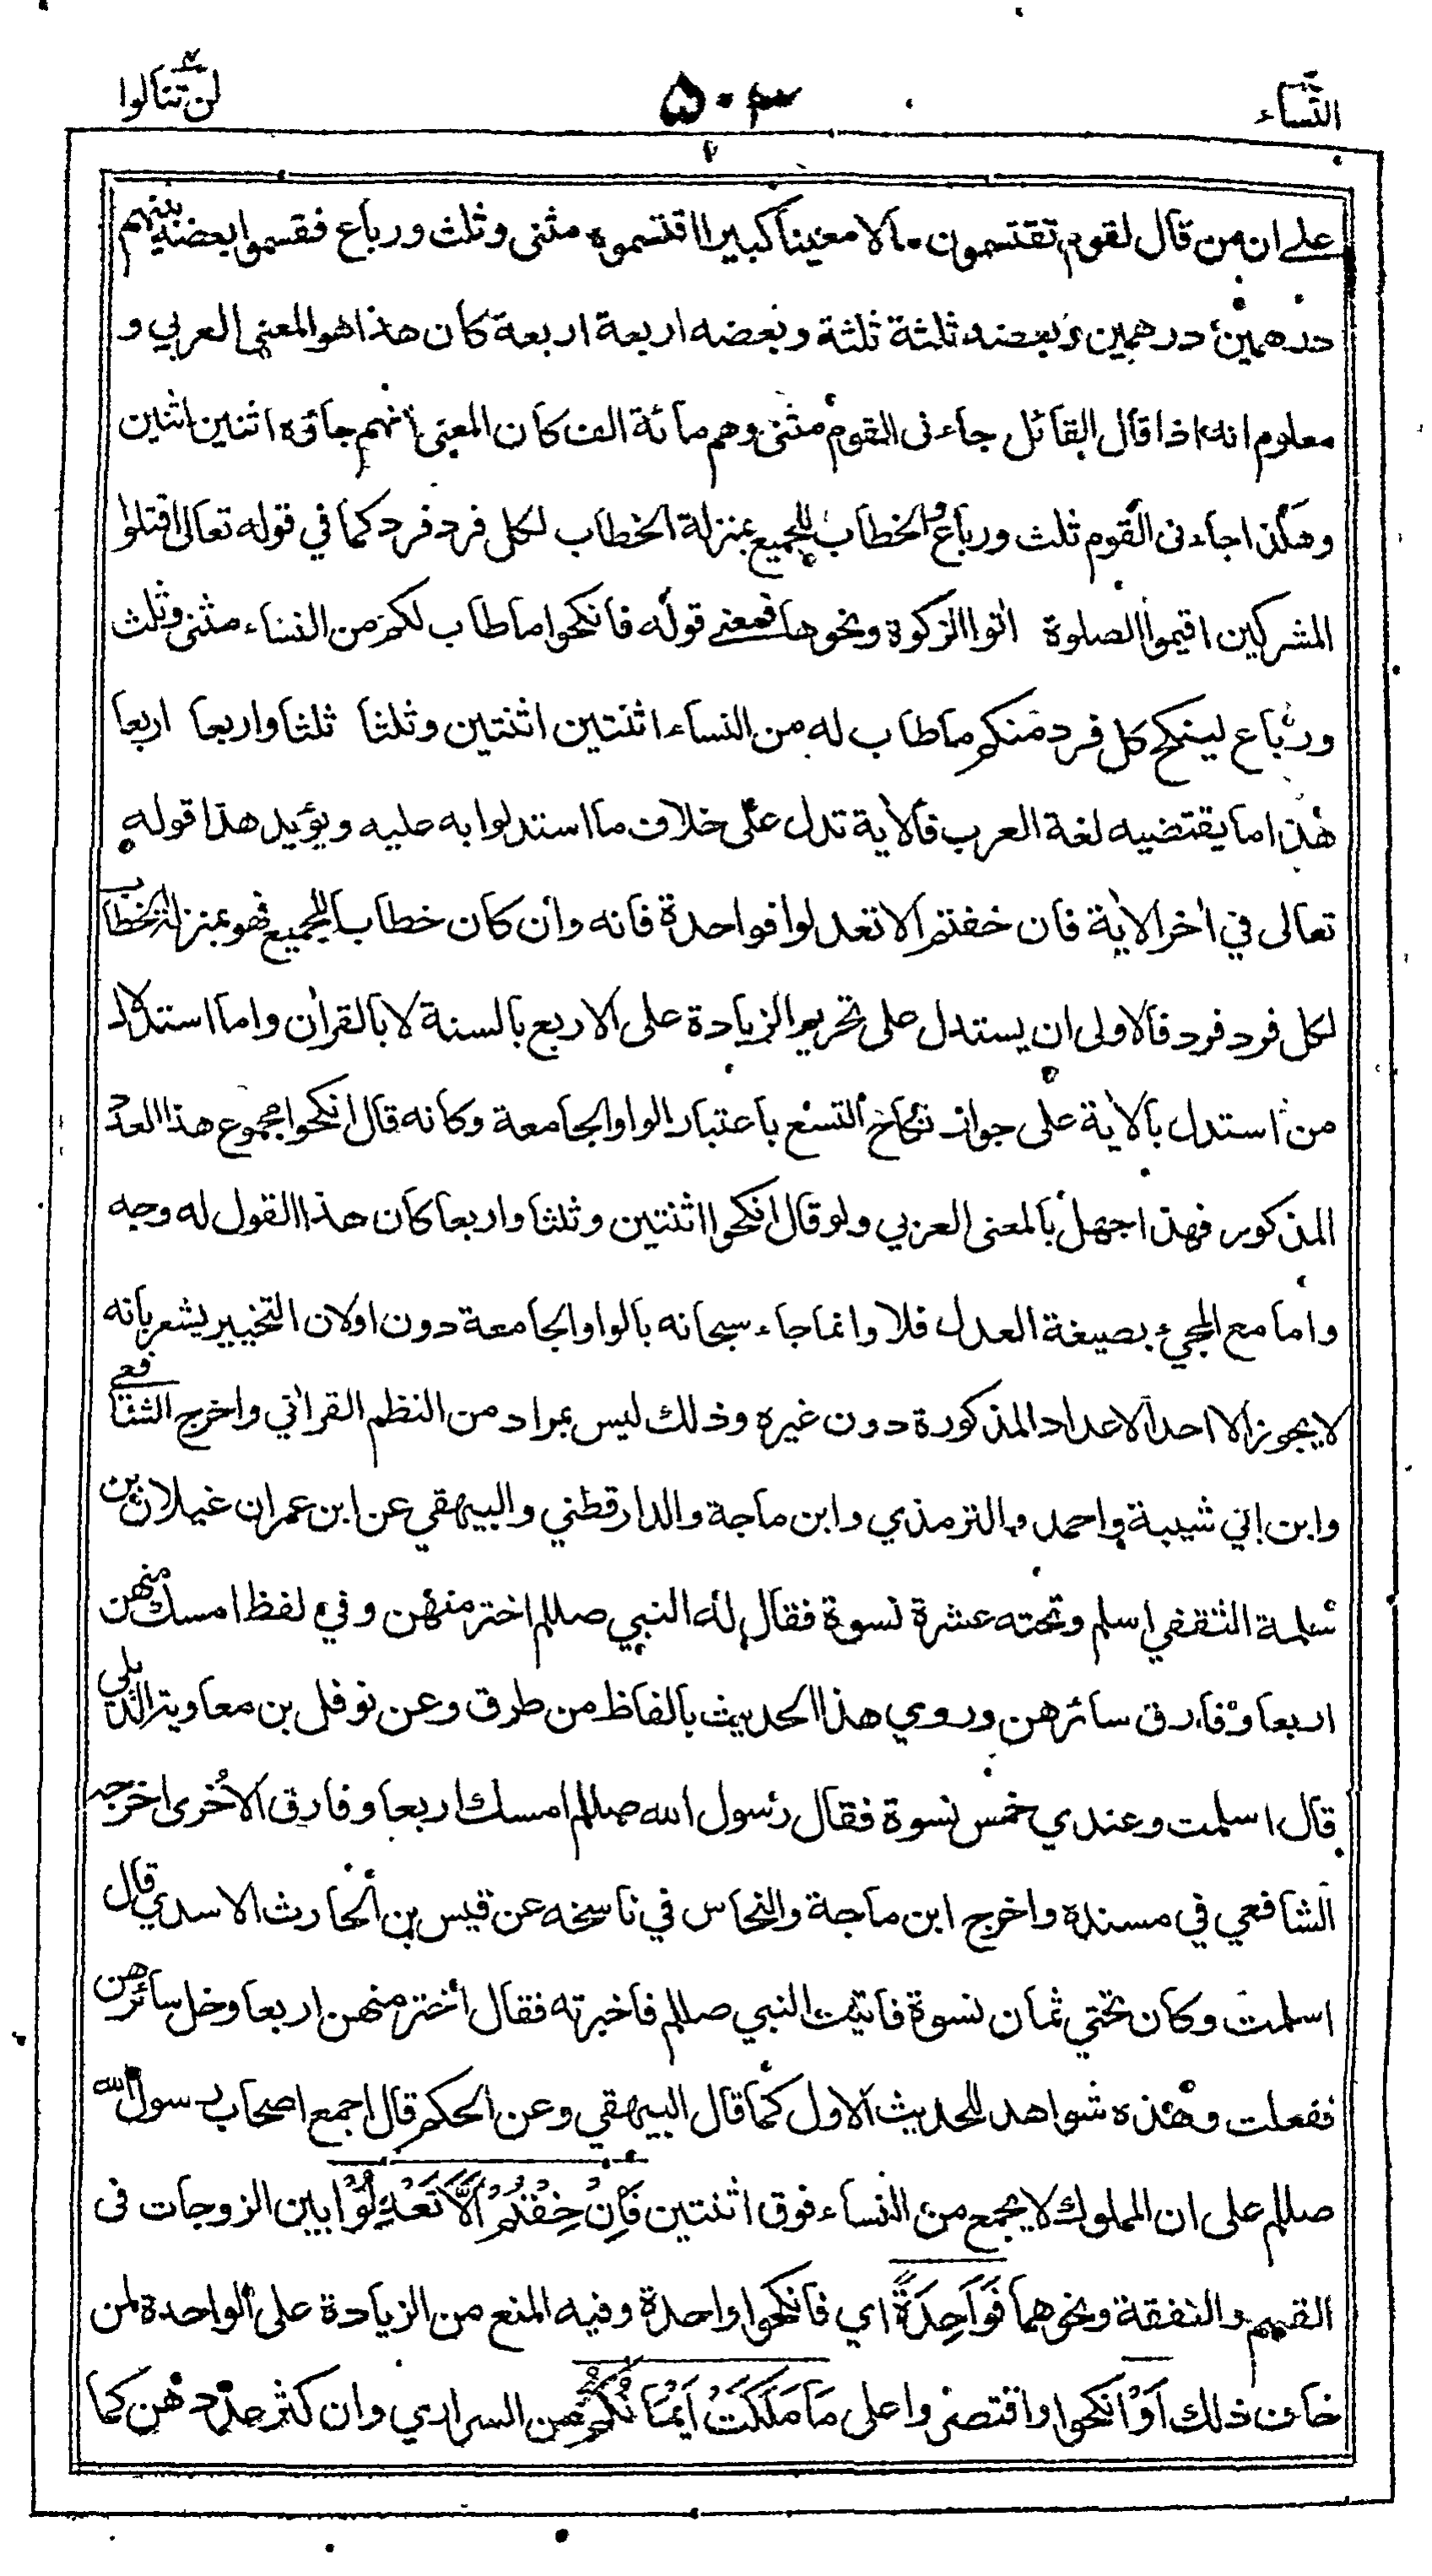 النساء ٥٠٣ لن تنالوا
على ان من قال لقوم تقتسمون مالا معينا كبيرا اقتسموه مثنى وثلث ورباع فقسموا بعضه بينهم
درهمين درهمين وبعضه ثلثة ثلثة وبعضه اربعة اربعة كان هذا هو المعنى العربي و
معلوم انه اذا قال القائل جاءنى القوم مثنى وهم مائة الف كان المعنى انهم جاؤه اثنين اثنين
وهكذا جاءنى القوم ثلث ورباع والخطاب للجميع بمنزلة الخطاب لكل فرد فرد كما في قوله تعالى اقتلوا
المشركين اقيموا الصلوة اتوا الزكوة ونحوها فمعنى قوله فانكحوا ما طاب لكم من النساء مثنى وثلث
ورباع لينكح كل فرد منكم ما طاب له من النساء اثنتين اثنتين وثلثا ثلثا واربعا اربعا
هذا ما يقتضيه لغة العرب فالاية تدل على خلاف ما استدلوا به عليه ويؤيد هذا قوله
تعالى في اخر الاية فان خفتم الا تعدلوا فواحدة فانه وان كان خطابا للجميع فهو بمنزلة الخطاب
لكل فرد فرد فالاولى ان يستدل على تحريم الزيادة على الاربع بالسنة لا بالقران واما استدلال
من استدل بالاية على جواز نكاح التسع باعتبار الواو الجامعة وكانه قال انكحوا مجموع هذا العدد
المذكور فهذا جهل بالمعنى العربي ولو قال انكحوا اثنتين وثلثا واربعا كان هذا القول له وجه
واما مع المجيء بصيغة العدل فلا وانما جاء سبحانه بالواو الجامعة دون او لان التخيير يشعر بانه
لا يجوز الا احد الاعداد المذكورة دون غيره وذلك ليس بمراد من النظم القراني واخرج الشافعي
وابن ابي شيبة واحمد والترمذي وابن ماجة والدارقطني والبيهقي عن ابن عمر ان غيلان بن
سلمة الثقفي اسلم وتحته عشرة نسوة فقال له النبي صللم اختر منهن وفي لفظ امسك منهن
اربعا وفارق سائرهن وروي هذا الحديث بالفاظ من طرق وعن نوفل بن معاوية الديلي
قال اسلمت وعندي خمس نسوة فقال رسول الله صللم امسك اربعا وفارق الاخرى اخرجه
الشافعي في مسنده واخرج ابن ماجة والنحاس في ناسخه عن قيس بن الحارث الاسدي قال
اسلمت وكان تحتي ثمان نسوة فاتيت النبي صللم فاخبرته فقال اختر منهن اربعا وخل سائرهن
ففعلت وهذه شواهد للحديث الاول كما قال البيهقي وعن الحكم قال اجمع اصحاب رسول الله
صللم على ان المملوك لا يجمع من النساء فوق اثنتين فَاِنْ خِفْتُمْ اَلَّا تَعْدِلُوْا بين الزوجات فى
القسم والنفقة ونحوهما فَوَاحِدَةً اي فانكحوا واحدة وفيه المنع من الزيادة على الواحدة لمن
خاف ذلك اَوْ انكحوا واقتصروا على مَا مَلَكَتْ اَيْمَانُكُمْ من السراري وان كثر عددهن كما